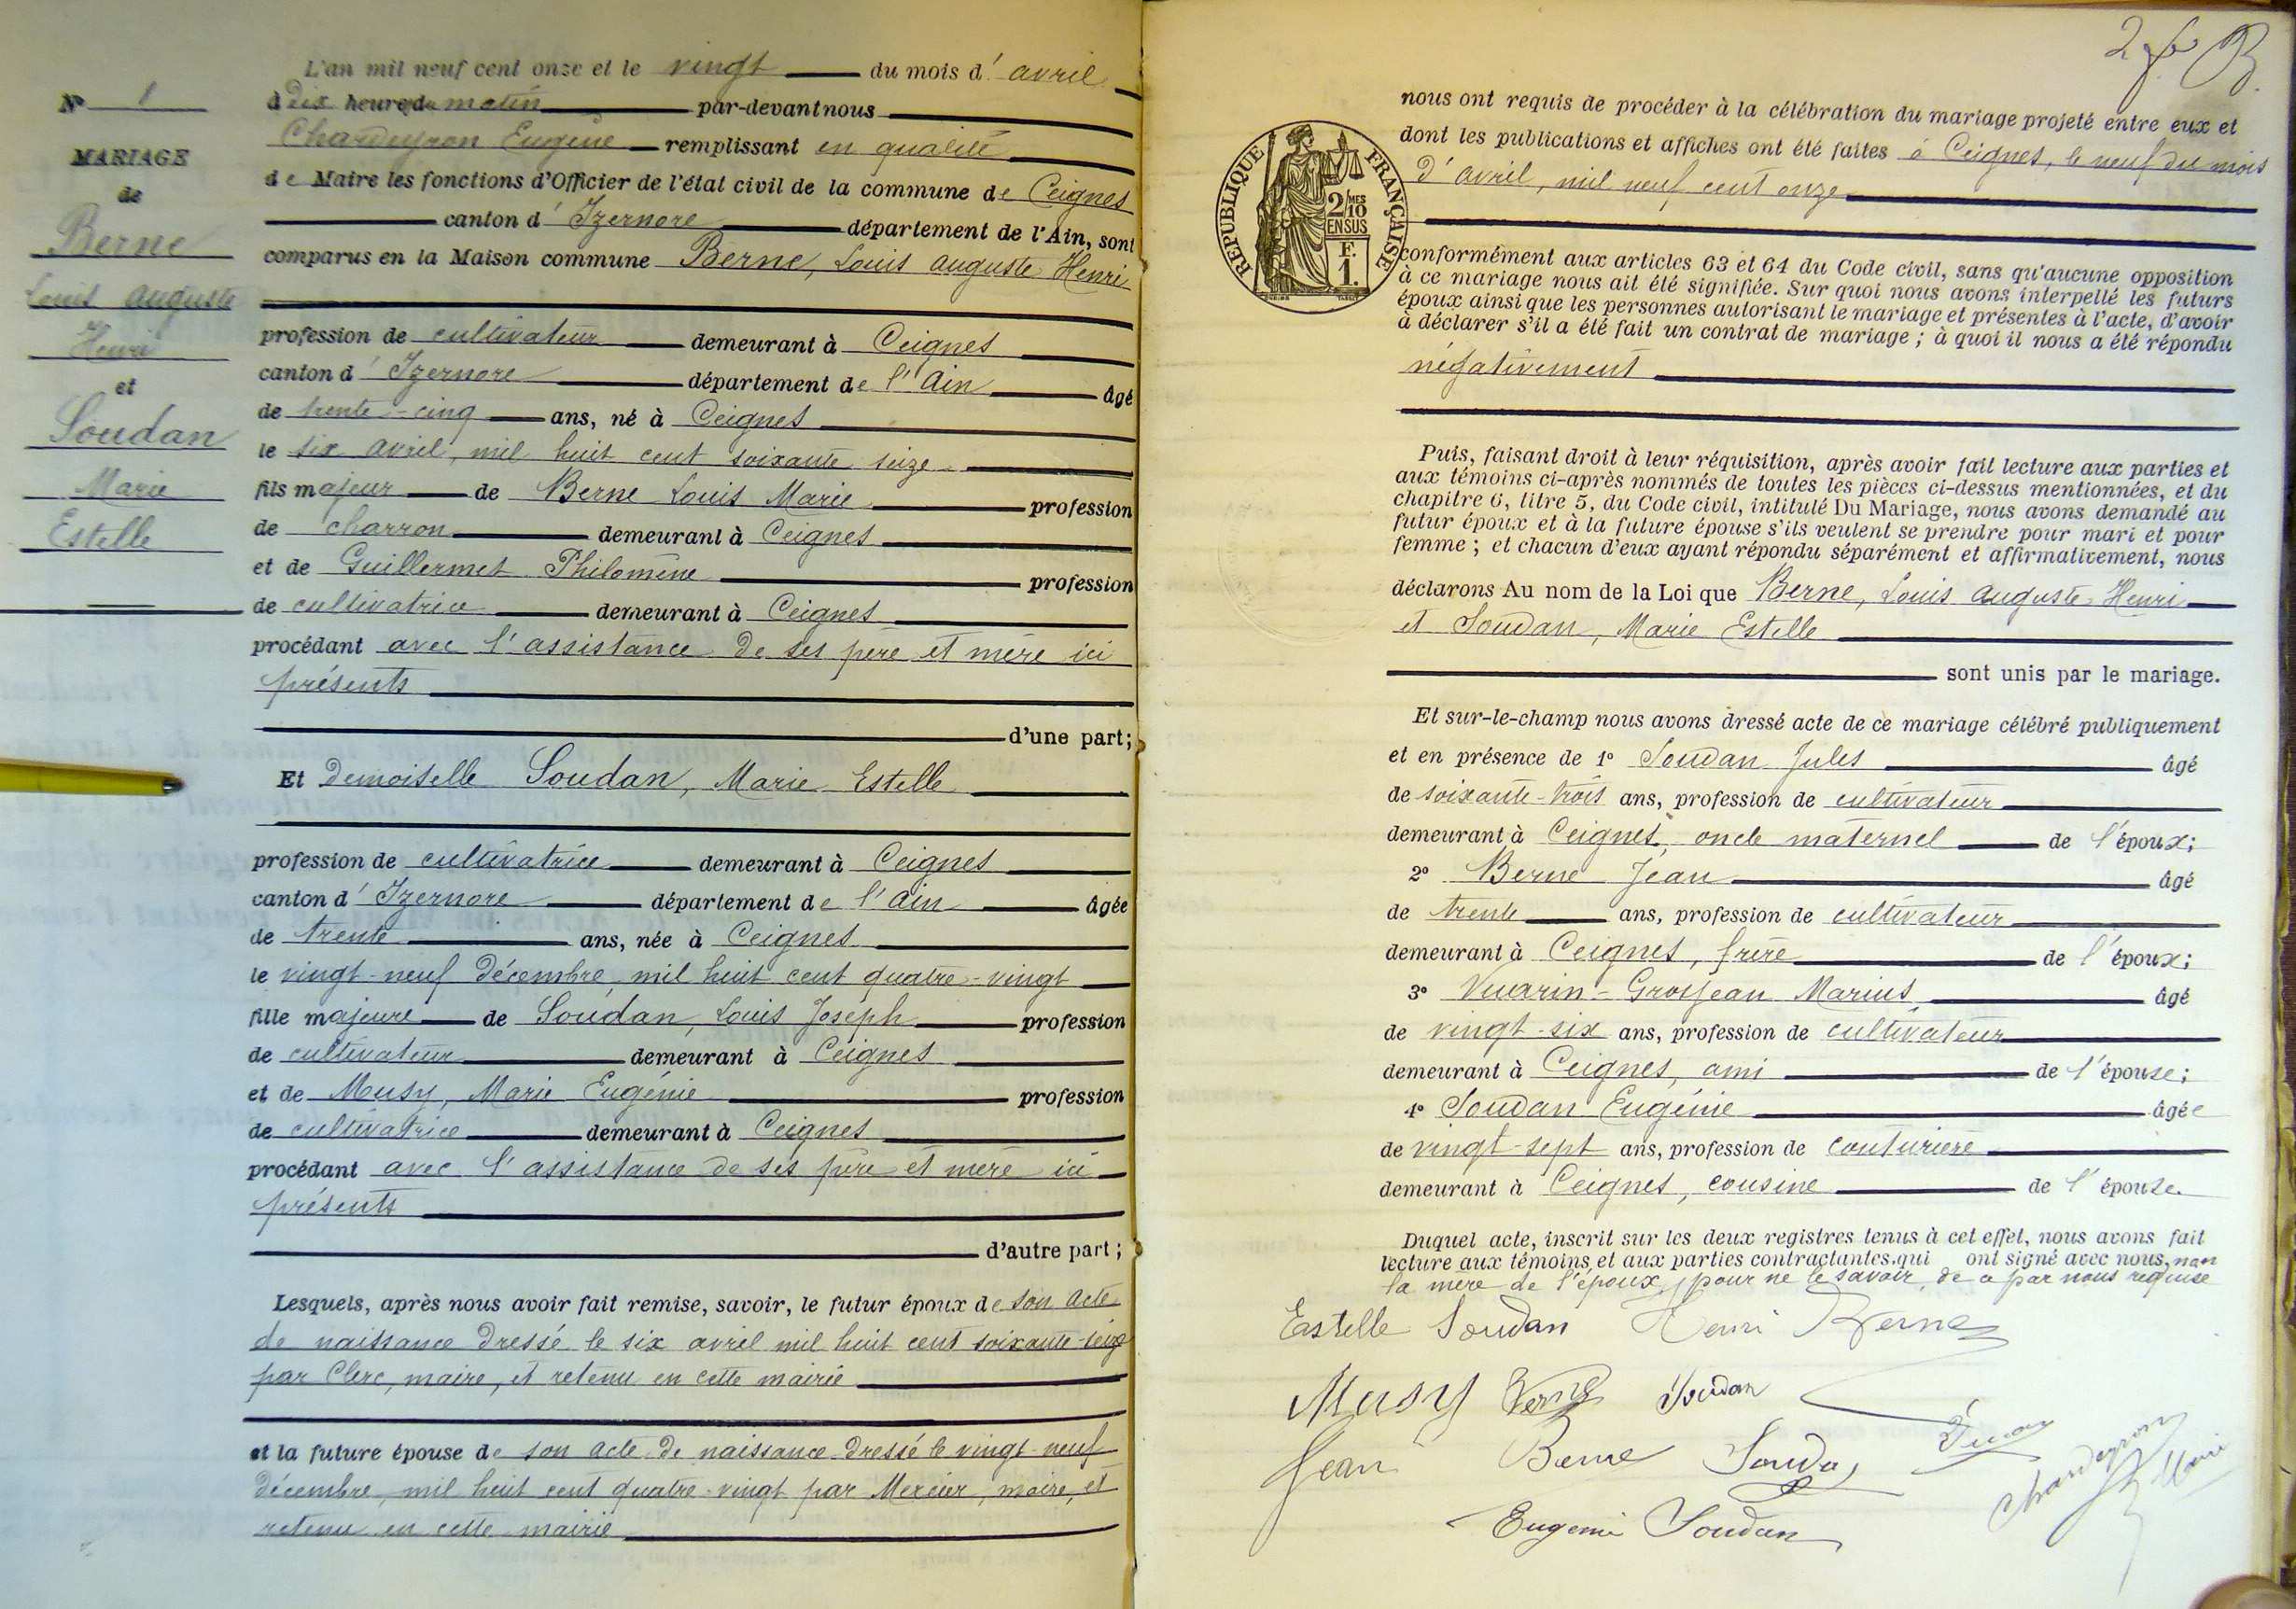 N° 1
MARIAGE
de
Berne
Louis Auguste
Henri
et
Soudan
Marie
Estelle
L'an mil neuf cent onze et le vingt du mois d' avril
à dix heures du matin par-devant nous
Chardeyron Eugène remplissant en qualité
de Maire les fonctions d'Officier de l'état civil de la commune de Ceignes
canton d' Izernore département de l'Ain, sont
comparus en la Maison commune Berne, Louis Auguste Henri
profession de cultivateur demeurant à Ceignes
canton d' Izernore département de l' Ain âgé
de trente-cinq ans, né à Ceignes
le six avril, mil huit cent soixante seize
fils majeur de Berne Louis Marie profession
de charron demeurant à Ceignes
et de Guillermet Philomène profession
de cultivatrice demeurant à Ceignes
procédant avec l'assistance de ses père et mère ici
présents
d'une part;
Et demoiselle Soudan, Marie Estelle
profession de cultivatrice demeurant à Ceignes
canton d' Izernore département de l' Ain âgée
de trente ans, née à Ceignes
le vingt-neuf décembre, mil huit cent quatre-vingt
fille majeure de Soudan, Louis Joseph profession
de cultivateur demeurant à Ceignes
et de Musy, Marie Eugénie profession
de cultivatrice demeurant à Ceignes
procédant avec l'assistance de ses père et mère ici
présents
d'autre part;
Lesquels, après nous avoir fait remise, savoir, le futur époux de son acte
de naissance dressé le six avril mil huit cent soixante-seize
par Clerc, maire, et retenu en cette mairie
et la future épouse de son acte de naissance dressé le vingt-neuf
décembre, mil huit cent quatre-vingt par Mercier, maire, et
retenu en cette mairie
2
nous ont requis de procéder à la célébration du mariage projeté entre eux et
dont les publications et affiches ont été faites à Ceignes, le neuf du mois
d'avril, mil neuf cent onze
REPUBLIQUE FRANÇAISE
2/10 MES
EN SUS
F.
1.
conformément aux articles 63 et 64 du Code civil, sans qu'aucune opposition
à ce mariage nous ait été signifiée. Sur quoi nous avons interpellé les futurs
époux ainsi que les personnes autorisant le mariage et présentes à l'acte, d'avoir
à déclarer s'il a été fait un contrat de mariage; à quoi il nous a été répondu
négativement
Puis, faisant droit à leur réquisition, après avoir fait lecture aux parties et
aux témoins ci-après nommés de toutes les pièces ci-dessus mentionnées, et du
chapitre 6, titre 5, du Code civil, intitulé Du Mariage, nous avons demandé au
futur époux et à la future épouse s'ils veulent se prendre pour mari et pour
femme; et chacun d'eux ayant répondu séparément et affirmativement, nous
déclarons Au nom de la Loi que Berne, Louis Auguste Henri
et Soudan, Marie Estelle
sont unis par le mariage.
Et sur-le-champ nous avons dressé acte de ce mariage célébré publiquement
et en présence de 1° Soudan Jules âgé
de soixante-trois ans, profession de cultivateur
demeurant à Ceignes, oncle maternel de l'époux;
2° Berne Jean âgé
de trente ans, profession de cultivateur
demeurant à Ceignes, frère de l'époux;
3° Vuarin-Grosjean Marius âgé
de vingt-six ans, profession de cultivateur
demeurant à Ceignes, ami de l'épouse;
4° Soudan Eugénie âgée
de vingt-sept ans, profession de couturière
demeurant à Ceignes, cousine de l'épouse.
Duquel acte, inscrit sur les deux registres tenus à cet effet, nous avons fait
lecture aux témoins et aux parties contractantes, qui ont signé avec nous, non
la mère de l'époux, pour ne le savoir, de ce par nous requise
Estelle Soudan Henri Berne
Musy Berne Soudan
Jean Berne Soudan
Chardeyron
Maire
Eugenie Soudan